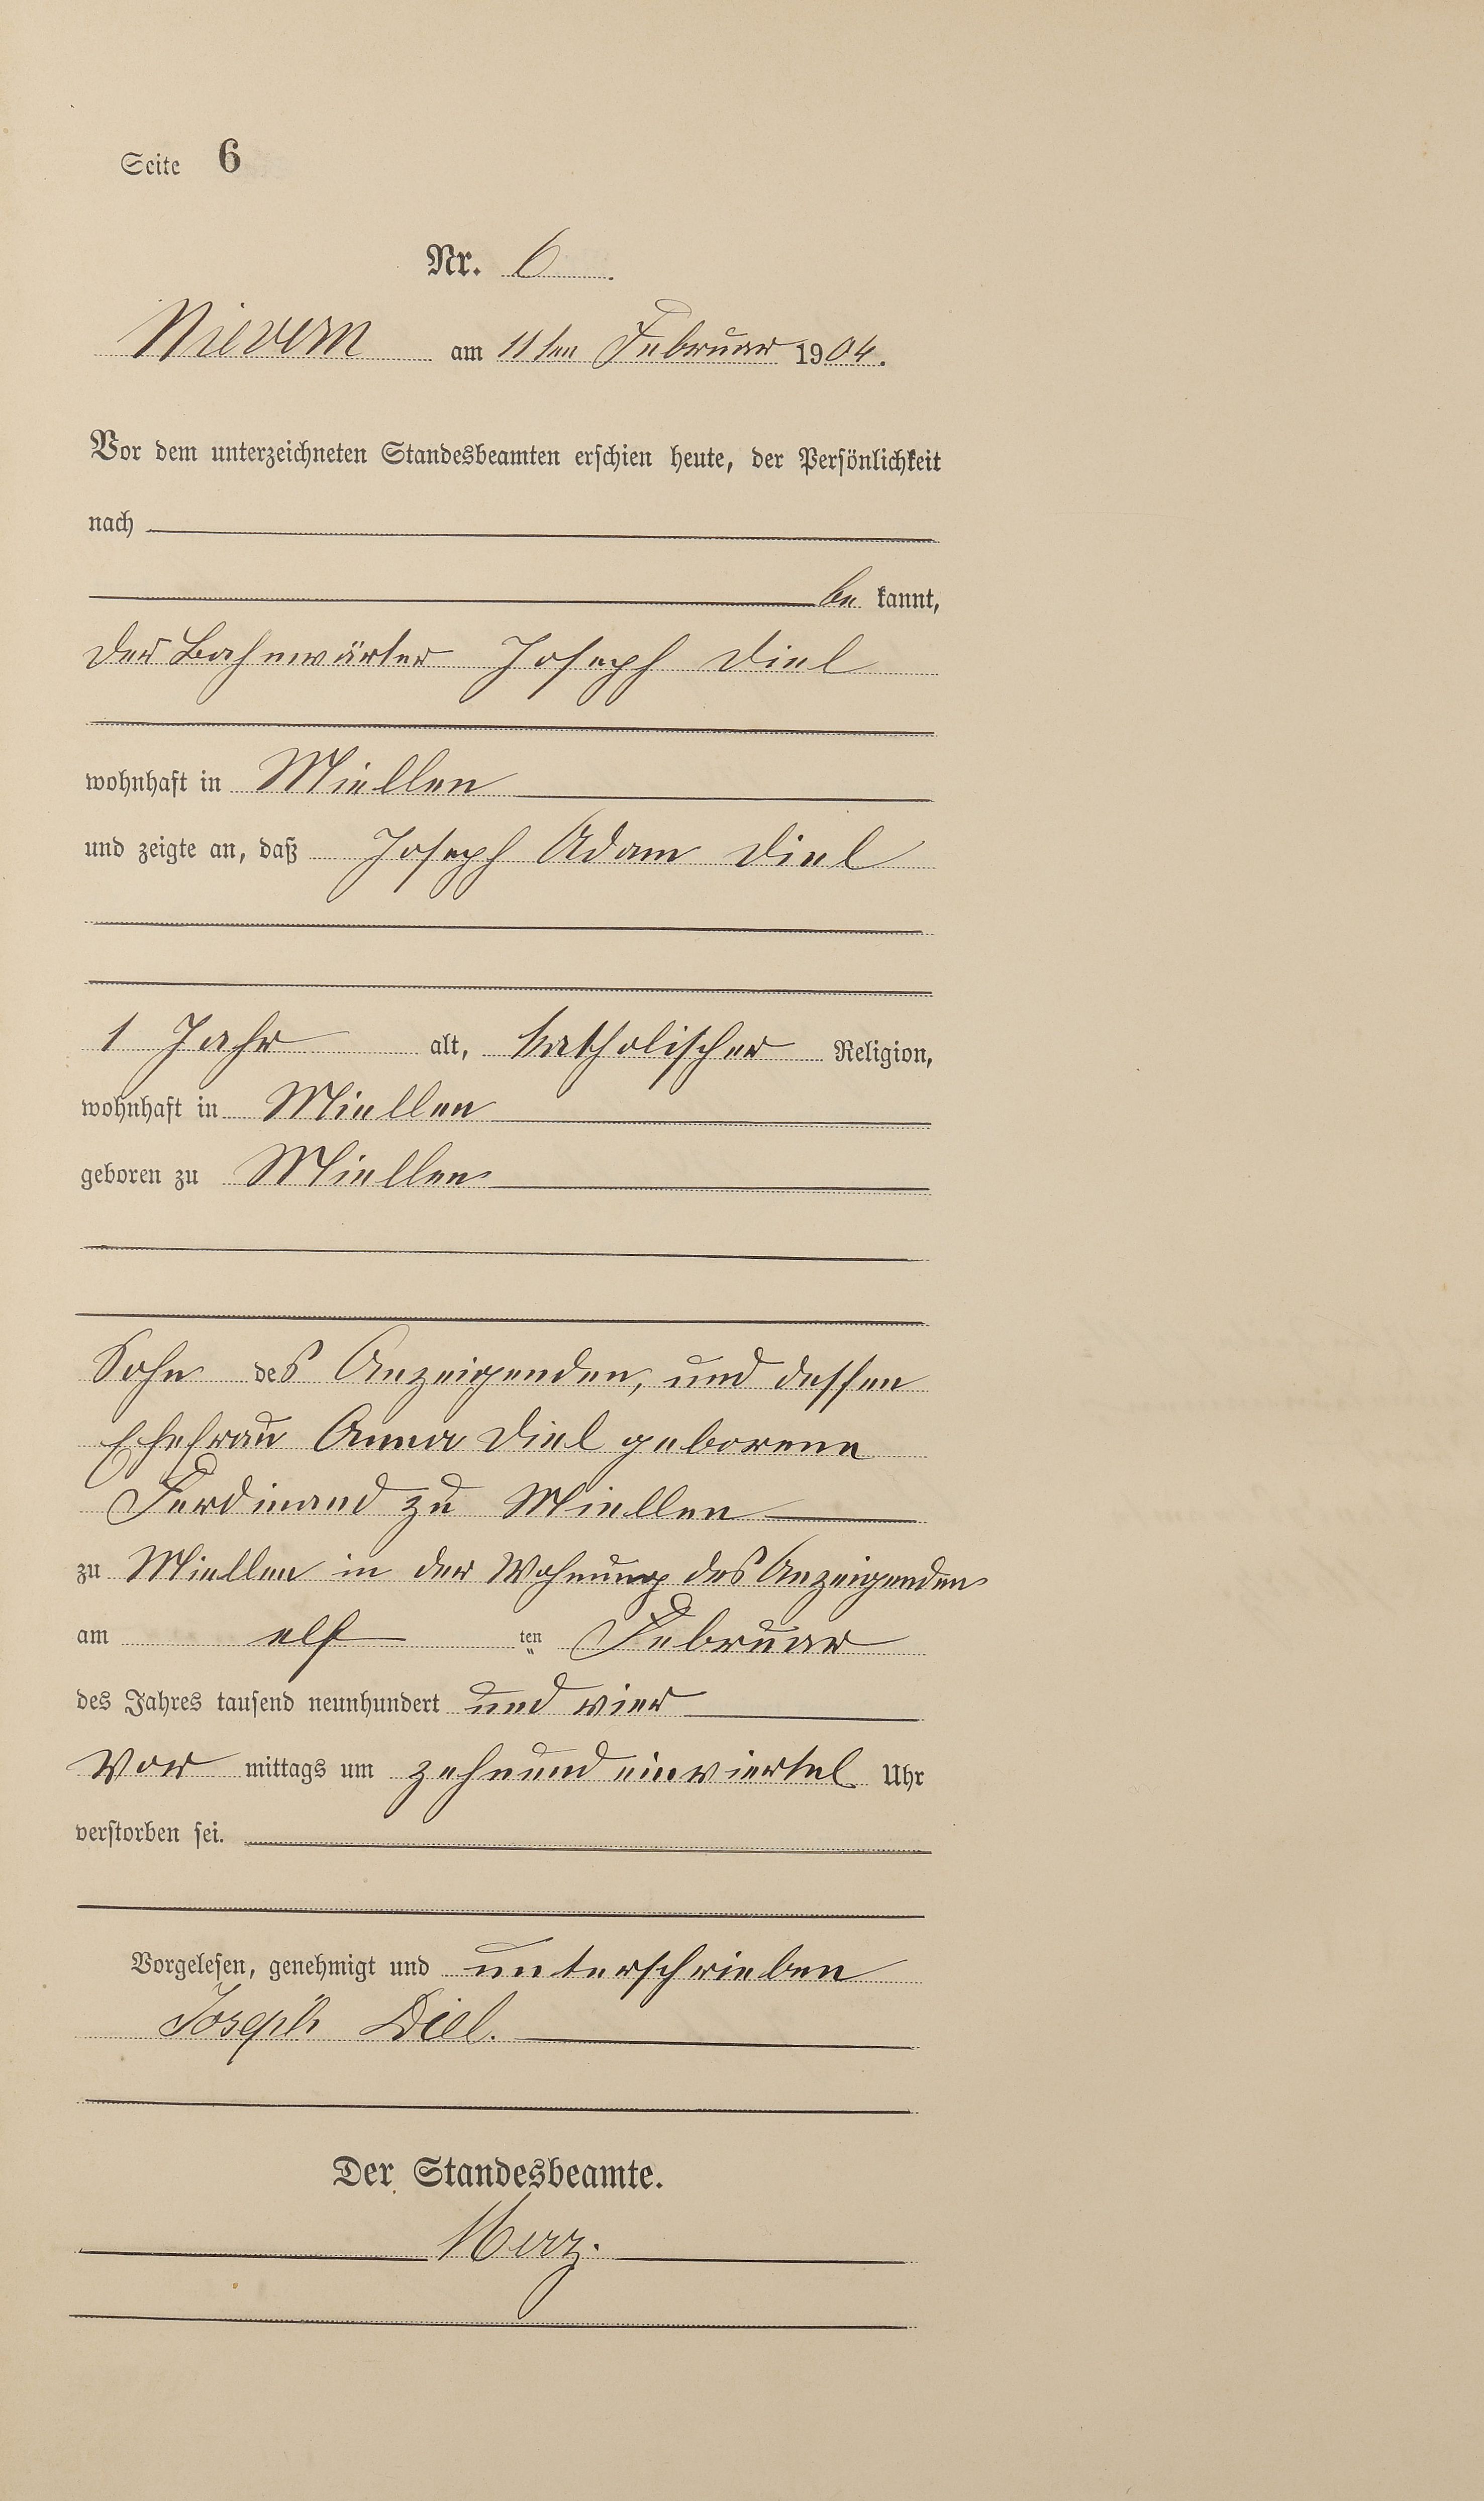 Seite 6
Nr. 6.
Nievern am 11ten Februar 1904.
Vor dem unterzeichneten Standesbeamten erschien heute, der Persönlichkeit
nach
be kannt,
der Bahnwärter Joseph Diel
wohnhaft in Miellen
und zeigte an, daß Joseph Adam Diel
1 Jahr alt, katholischer Religion,
wohnhaft in Miellen
geboren zu Miellen
Sohn des Anzeigenden, und dessen
Ehefrau Anna Diel geborene
Ferdinand zu Miellen
zu Miellen in der Wohnung des Anzeigenden
am elf ten Februar
des Jahres tausend neunhundert und vier
Vor mittags um zehnundeinviertel Uhr
verstorben sei.
Vorgelesen, genehmigt und unterschrieben
Joseph Diel.
Der Standesbeamte.
Merz.